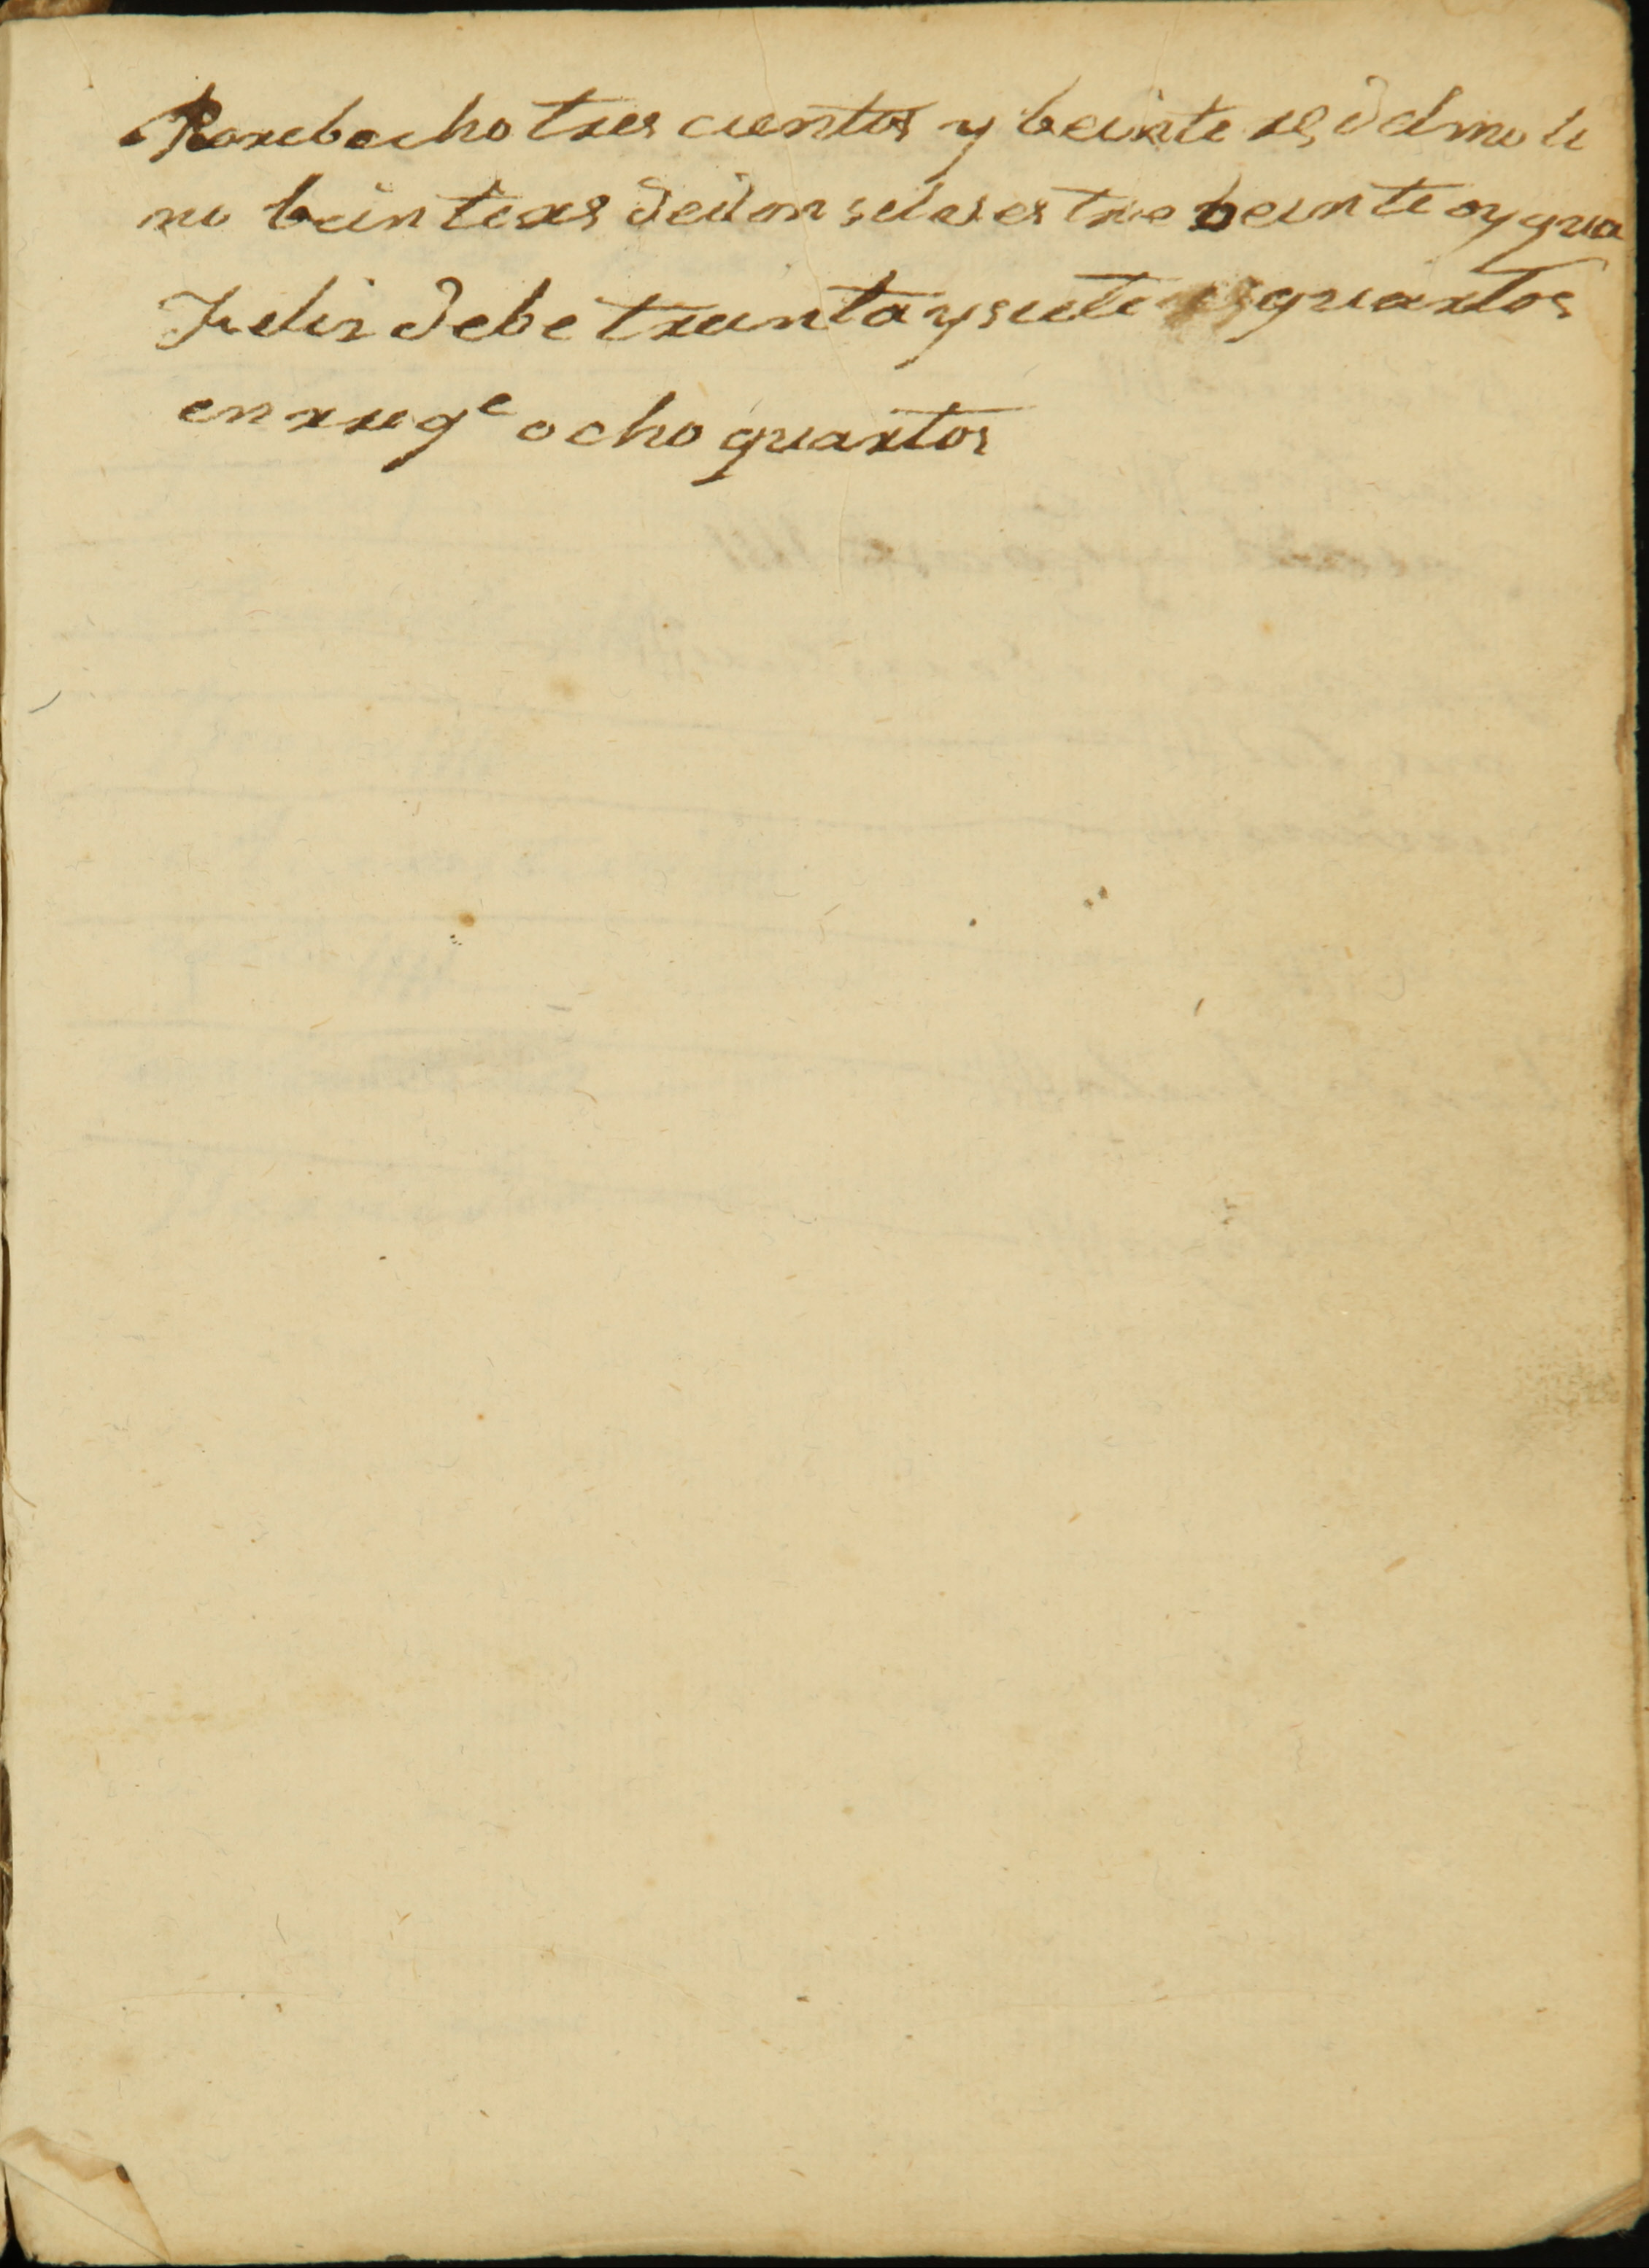 Rorebocho tres cientos y beinte rs del moli
no beinte rs de don silvestre beinte y qua
Felis debe treinta y siete quartos
en rrugᵉ ocho quartos